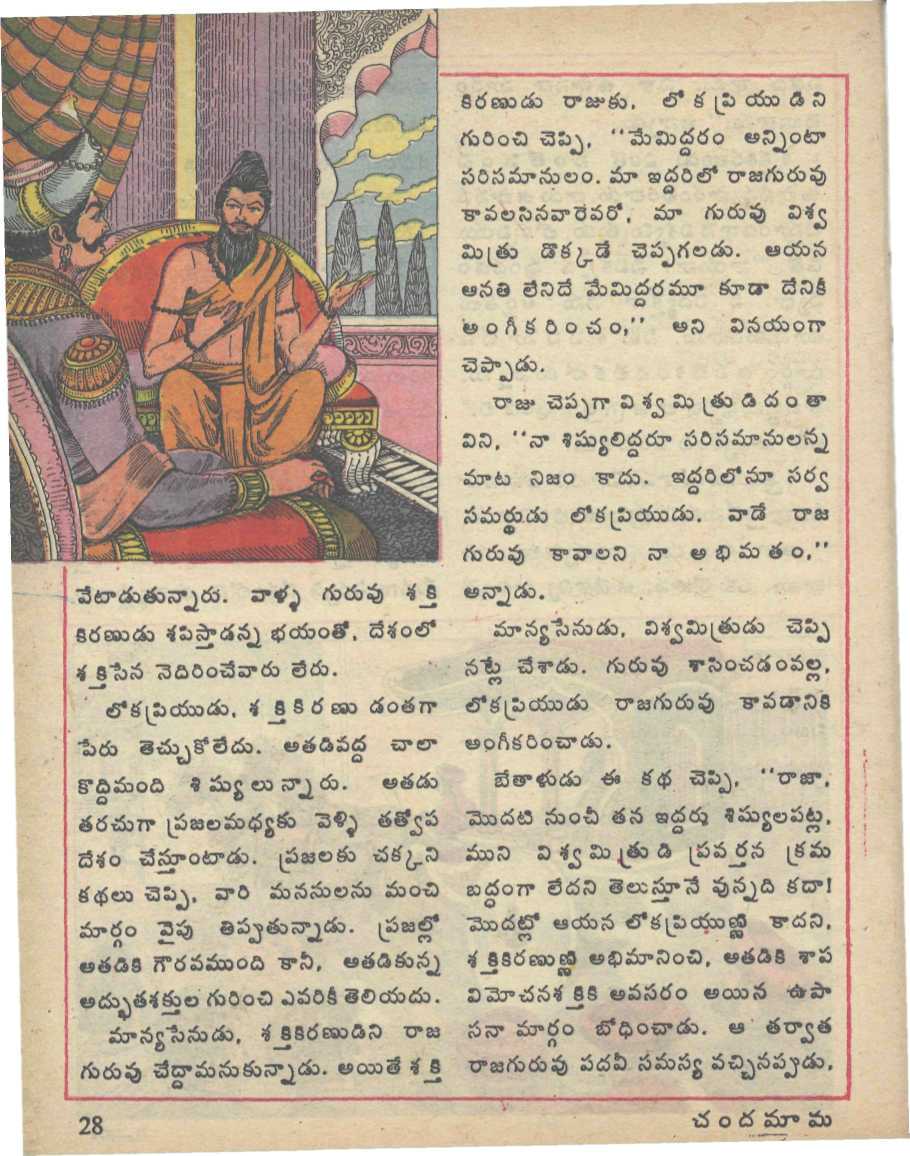 వేటాడుతున్నారు. వాళ్ళ గురువు శక్తి
కిరణుడు శపిస్తాడన్న భయంతో, దేశంలో
శక్తిసేన నెదిరించేవారు లేరు.
లోకప్రియుడు, శక్తికిరణు డంతగా
పేరు తెచ్చుకోలేదు. అతడివద్ద చాలా
కొద్దిమంది శిష్యులున్నారు. అతడు
తరచుగా ప్రజలమధ్యకు వెళ్ళి తత్వోప
దేశం చేస్తూంటాడు. ప్రజలకు చక్కని
కథలు చెప్పి, వారి మనసులను మంచి
మార్గం వైపు తిప్పుతున్నాడు. ప్రజల్లో
అతడికి గౌరవముంది కానీ, అతడికున్న
అద్భుతశక్తుల గురించి ఎవరికీ తెలియదు.
మాన్యసేనుడు, శక్తికిరణుడిని రాజ
గురువు చేద్దామనుకున్నాడు. అయితే శక్తి
కిరణుడు రాజుకు, లోకప్రియుడిని
గురించి చెప్పి, ‘‘మేమిద్దరం అన్నింటా
సరిసమానులం. మా ఇద్దరిలో రాజగురువు
కావలసినవారెవరో, మా గురువు విశ్వ
మిత్రు డొక్కడే చెప్పగలడు. ఆయన
ఆనతి లేనిదే మేమిద్దరమూ కూడా దేనికీ
అంగీకరించం,’’ అని వినయంగా
చెప్పాడు.
రాజు చెప్పగా విశ్వమిత్రుడిదంతా
విని, ‘‘నా శిష్యులిద్దరూ సరిసమానులన్న
మాట నిజం కాదు. ఇద్దరిలోనూ సర్వ
సమర్థుడు లోకప్రియుడు. వాడే రాజ
గురువు కావాలని నా అభిమతం,’’
అన్నాడు.
మాన్యసేనుడు, విశ్వమిత్రుడు చెప్పి
నట్లే చేశాడు. గురువు శాసించడంవల్ల,
లోకప్రియుడు రాజగురువు కావడానికి
అంగీకరించాడు.
బేతాళుడు ఈ కథ చెప్పి, ‘‘రాజా,
మొదటి నుంచీ తన ఇద్దరు శిష్యులపట్ల,
ముని విశ్వమిత్రుడి ప్రవర్తన క్రమ
బద్ధంగా లేదని తెలుస్తూనే వున్నది కదా!
మొదట్లో ఆయన లోకప్రియుణ్ణి కాదని,
శక్తికిరణుణ్ణి అభిమానించి, అతడికి శాప
విమోచనశక్తికి అవసరం అయిన ఉపా
సనా మార్గం బోధించాడు. ఆ తర్వాత
రాజగురువు పదవీ సమస్య వచ్చినప్పుడు,
28
చందమామ